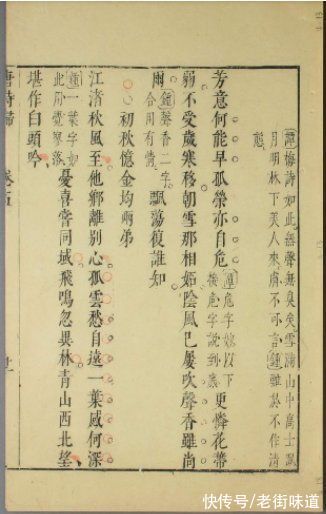 譚梅詩如此無聲無臭矣雪滿山中高士臥
月明林下美人來膚不可言鍾雖然不作清
芳意何能早孤榮亦自危譚危字妙以下
後危字說到底更憐花蒂
弱不受歲寒移朝雪那相妬陰風已屢吹馨香雖尚
爾鍾馨香二字
合用有情飄蕩復誰知
初秋憶金均兩弟
江渚秋風至他鄉離別心孤雲愁自遠一葉感何深
鍾一葉字如
此用覺寥落憂喜嘗同域飛鳴忽異林青山西北望
堪作白頭吟
唐詩歸 卷五
快传号/老街味道